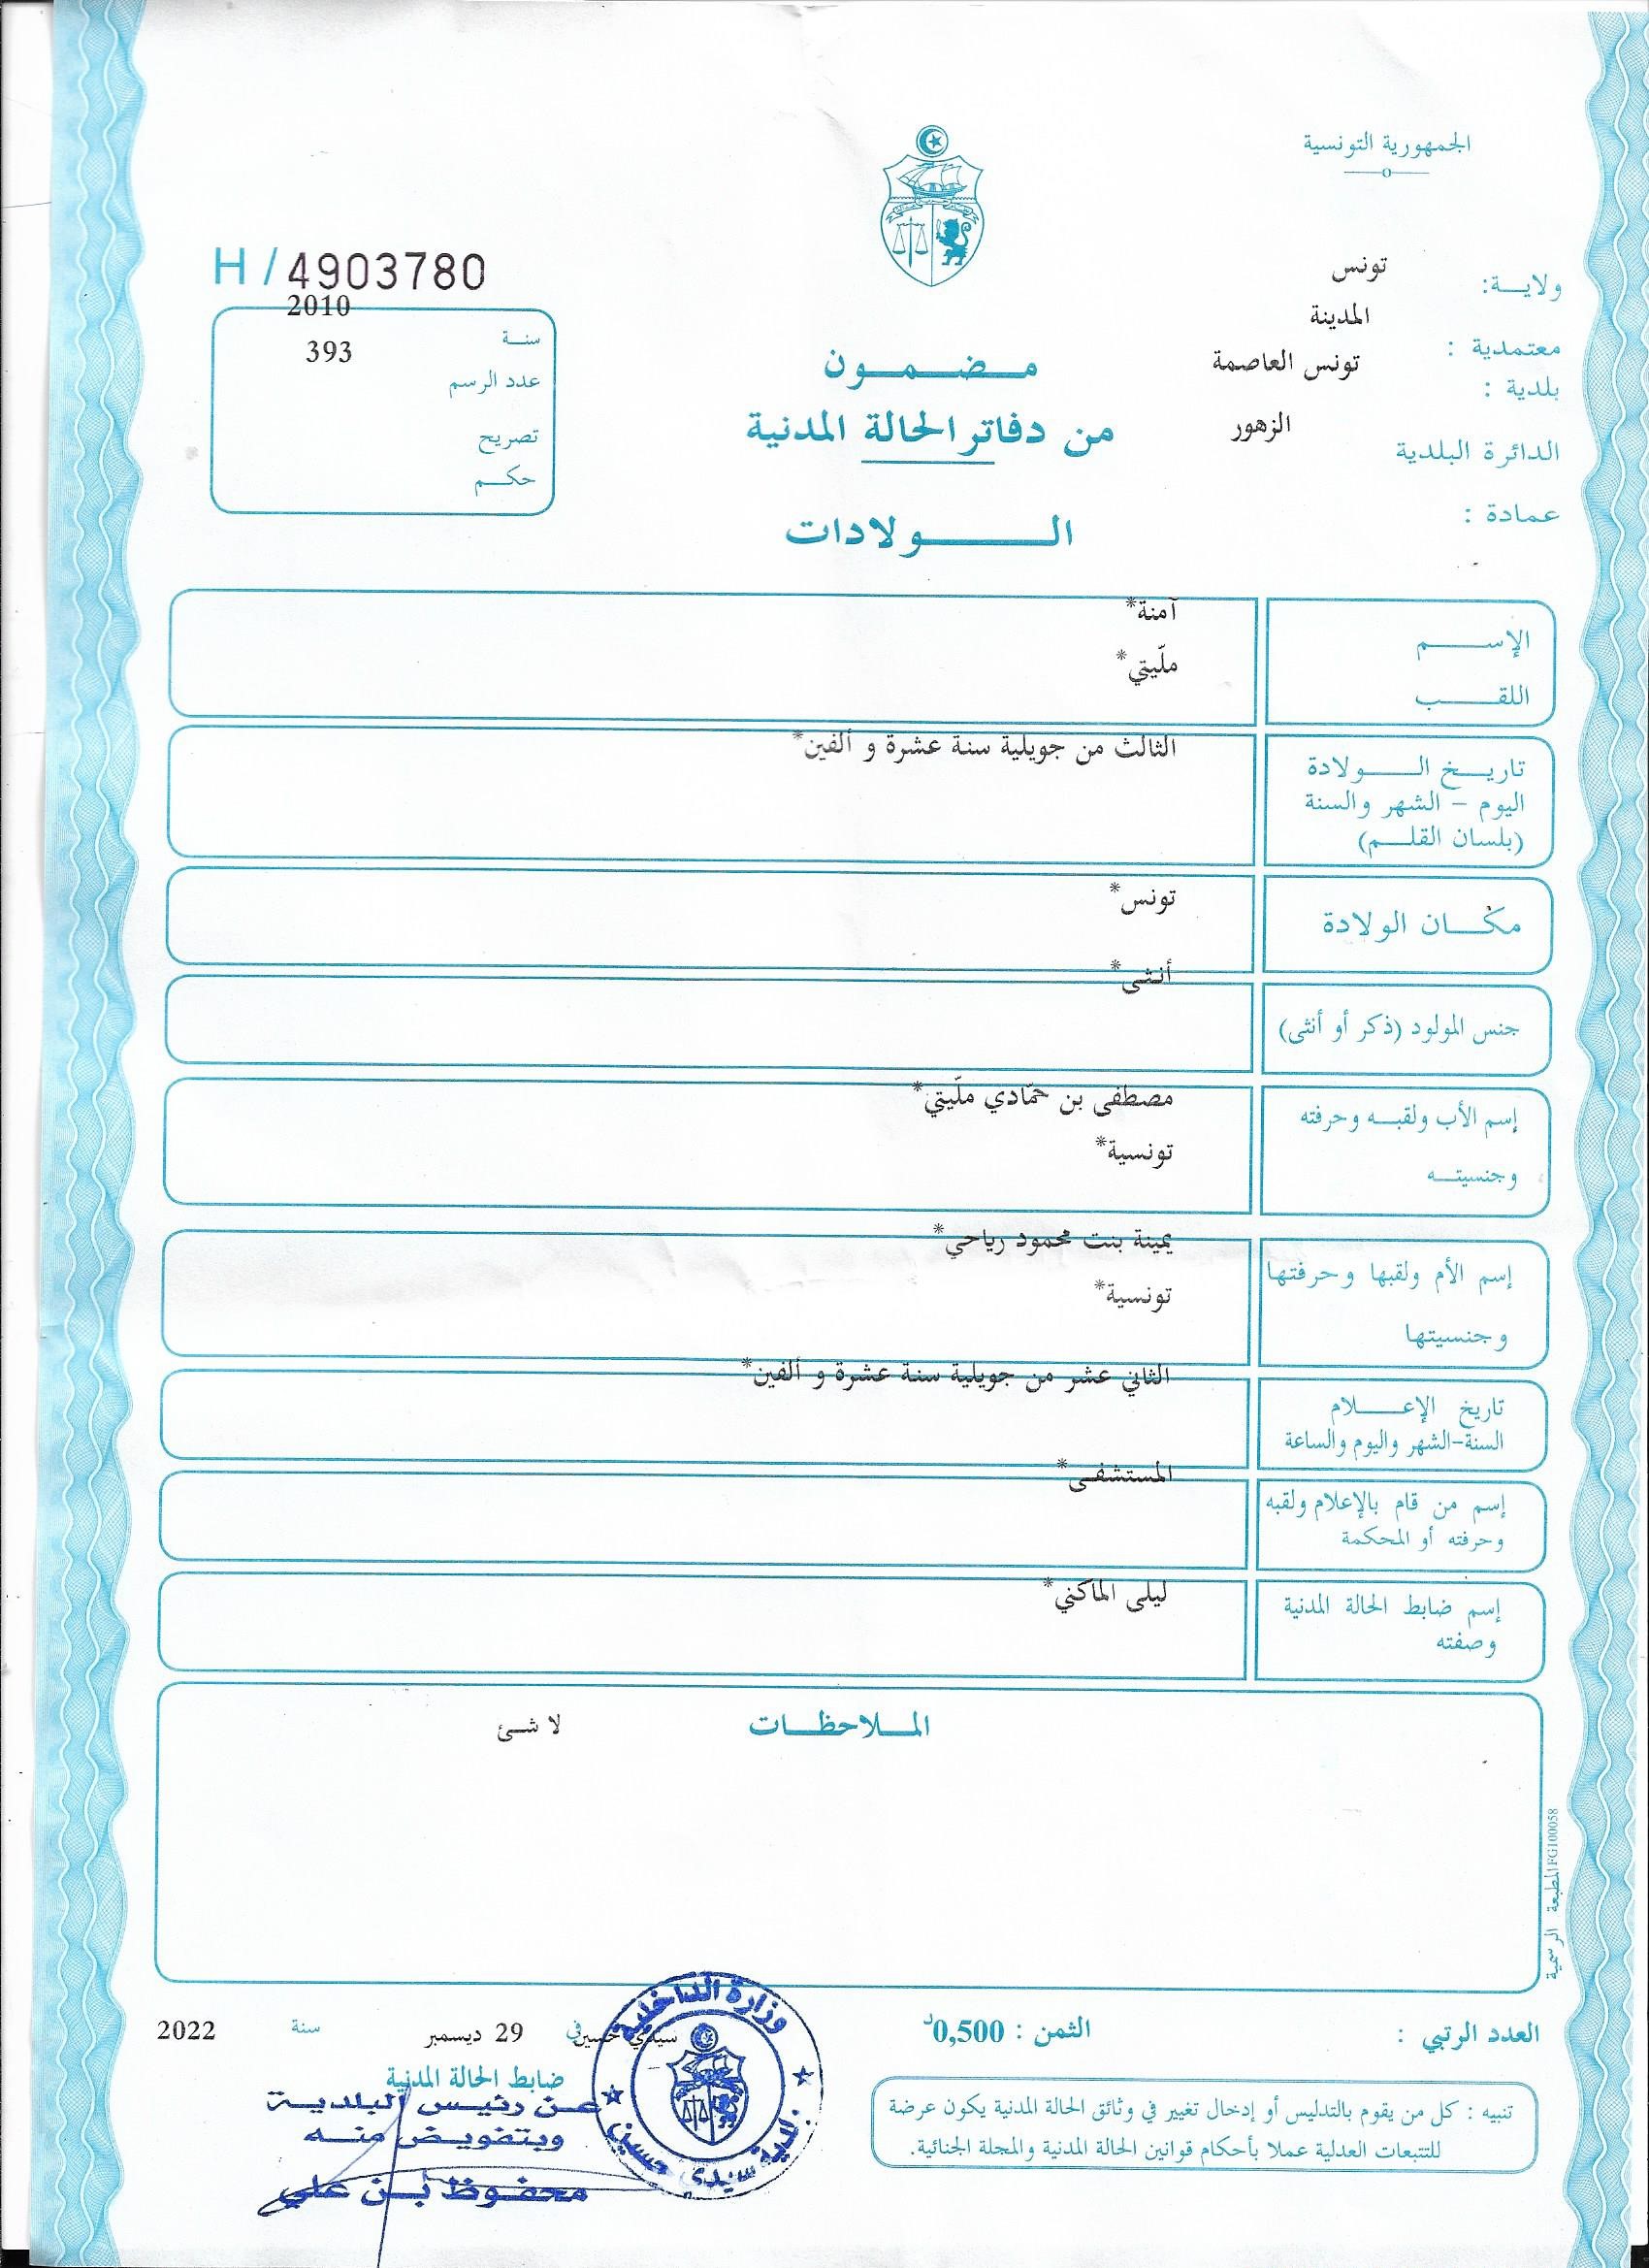 الجمهورية التونسية
ولاية: تونس
معتمدية : المدينة
بلدية : تونس العاصمة
الدائرة البلدية الزهور
عمادة :
H / 4903780
سنة 2010
عدد الرسم 393
تصريح
حكم
مضمون
من دفاتر الحالة المدنية
الولادات
الإسم آمنة*
اللقب ملّيتي*
تاريخ الولادة الثالث من جويلية سنة عشرة و ألفين*
اليوم - الشهر والسنة
(بلسان القلم)
مكان الولادة تونس*
جنس المولود (ذكر أو أنثى) أنثى*
إسم الأب ولقبه وحرفته مصطفى بن حمّادي ملّيتي*
وجنسيته تونسية*
إسم الأم ولقبها وحرفتها يمينة بنت محمود رياحي*
وجنسيتها تونسية*
تاريخ الإعلام الثاني عشر من جويلية سنة عشرة و ألفين*
السنة-الشهر واليوم والساعة
إسم من قام بالإعلام ولقبه المستشفى*
وحرفته أو المحكمة
إسم ضابط الحالة المدنية ليلى الماكني*
وصفته
الملاحظات لا شئ
المطبعة الرسمية FG100058
العدد الرتبي :
الثمن : 0,500د
سيدي حسين في 29 ديسمبر سنة 2022
ضابط الحالة المدنية
عن رئيس البلدية
وبتفويض منه
محفوظ بن علي
وزارة الداخلية
بلدية سيدي حسين
تنبيه : كل من يقوم بالتدليس أو إدخال تغيير في وثائق الحالة المدنية يكون عرضة
للتتبعات العدلية عملا بأحكام قوانين الحالة المدنية والمجلة الجنائية.